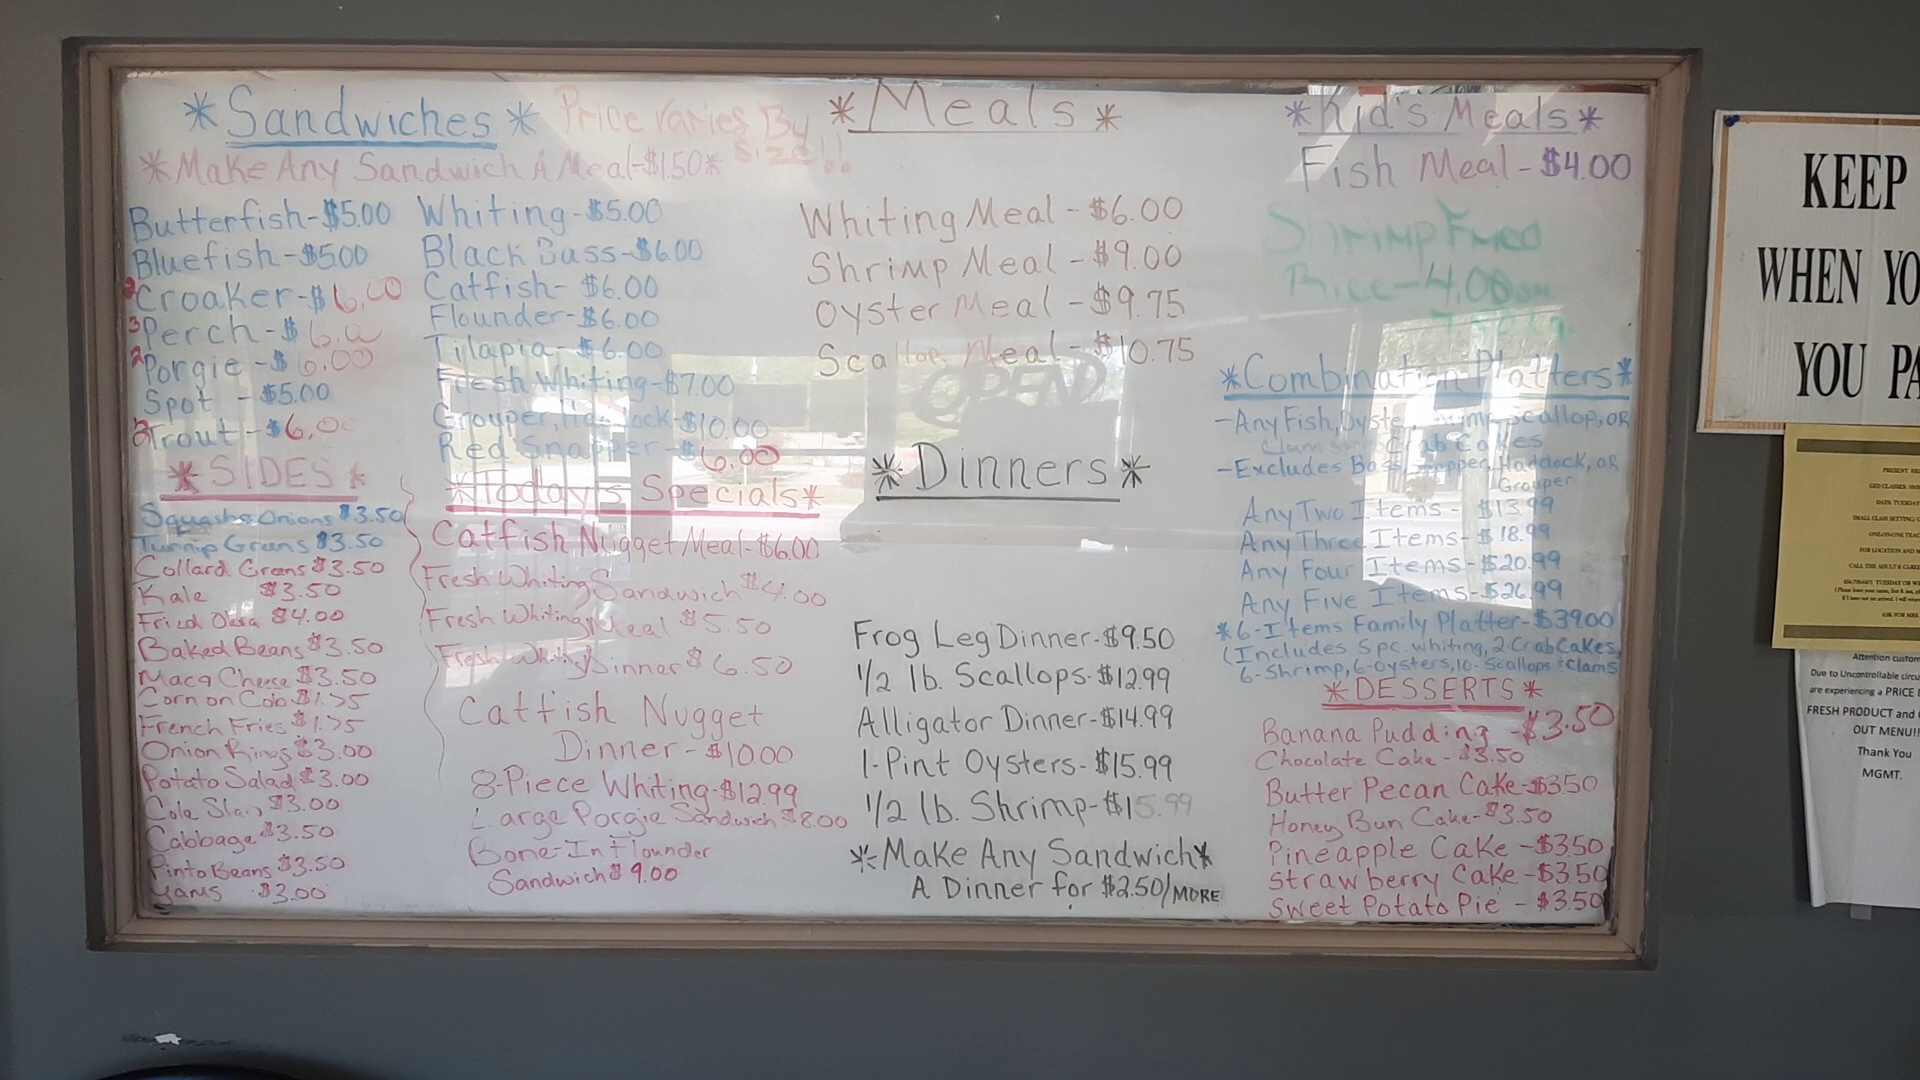 *Sandwiches*
Price varies By
size!!
*Make Any Sandwich A Meal-$1.50*
Butterfish-$5.00
Bluefish-$5.00
2 Croaker-$6.00
3 Perch-$6.00
2 Porgie-$6.00
Spot -$5.00
2 Trout-$6.00
Whiting-$5.00
Black Bass-$6.00
Catfish-$6.00
Flounder-$6.00
Tilapia-$6.00
Fresh Whiting-$7.00
Grouper, Haddock-$10.00
Red Snapper-$6.00
*SIDES*
Squash & Onions $3.50
Turnip Greens $3.50
Collard Greens $3.50
Kale $3.50
Fried Okra $4.00
Baked Beans $3.50
Mac & Cheese $3.50
Corn on Cob $1.75
French Fries $1.75
Onion Rings $3.00
Potato Salad $3.00
Cole Slaw $3.00
Cabbage $3.50
Pinto Beans $3.50
Yams $3.00
*Today's Specials*
Catfish Nugget Meal-$6.00
Fresh Whiting Sandwich $4.00
Fresh Whiting Meal $5.50
Fresh Whiting Dinner $6.50
Catfish Nugget
Dinner-$10.00
8-Piece Whiting-$12.99
Large Porgie Sandwich $8.00
Bone-In Flounder
Sandwich $9.00
*Meals*
Whiting Meal-$6.00
Shrimp Meal-$9.00
Oyster Meal-$9.75
Scallop Meal-$10.75
OPEN
*Dinners*
Frog Leg Dinner-$9.50
1/2 lb. Scallops-$12.99
Alligator Dinner-$14.99
1-Pint Oysters-$15.99
1/2 lb. Shrimp-$15.99
*Make Any Sandwich*
A Dinner for $2.50/MORE
*Kid's Meals*
Fish Meal-$4.00
Shrimp Fried
Rice-4.00 sm
7.50 Lg.
*Combination Platters*
-Any Fish, Oyster, Shrimp, Scallop, OR
Clams or Crab Cakes
-Excludes Bass, Snapper, Haddock, OR
Grouper
Any Two Items-$13.99
Any Three Items-$18.99
Any Four Items-$20.99
Any Five Items-$26.99
*6-Items Family Platter-$39.00
(Includes 5 pc. whiting, 2-Crab Cakes,
6-Shrimp, 6-Oysters, 10-Scallops & Clams
*DESSERTS*
Banana Pudding-$3.50
Chocolate Cake-$3.50
Butter Pecan Cake-$3.50
Honey Bun Cake-$3.50
Pineapple Cake-$3.50
Strawberry Cake-$3.50
Sweet Potato Pie-$3.50
KEEP
WHEN YO
YOU PA
Attention custom
Due to Uncontrollable circu
are experiencing a PRICE
FRESH PRODUCT and
OUT MENU!!
Thank You
MGMT.